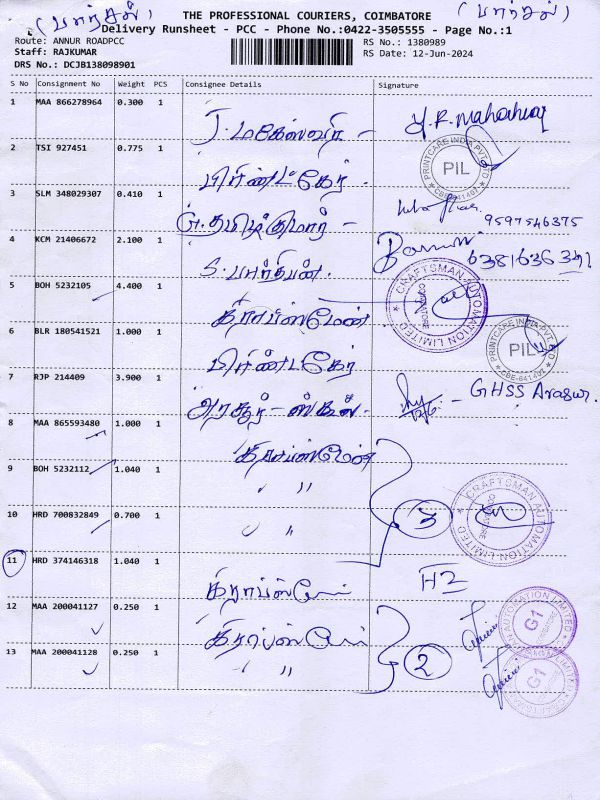 (பார்சல்) THE PROFESSIONAL COURIERS, COIMBATORE (பார்சல்)
Delivery Runsheet - PCC - Phone No.:0422-3505555 - Page No.:1
Route: ANNUR ROADPCC RS No.: 1380989
Staff: RAJKUMAR RS Date: 12-Jun-2024
DRS No.: DCJB138098901
S No Consignment No Weight PCS Consignee Details Signature
1 MAA 866278964 0.300 1 J. மகேஸ்வரி -
2 TSI 927451 0.775 1 பிரிண்ட்கேர் PRINTCARE INDIA PVT LTD PIL
3 SLM 348029307 0.410 1 G. தமிழ்குமார் - 9597546375
4 KCM 21406672 2.100 1 S. பார்த்திபன். 6381636391
5 BOH 5232105 4.400 1 கிராப்ஸ்மேன் CRAFTSMAN AUTOMATION LIMITED COIMBATORE
6 BLR 180541521 1.000 1 பிரிண்ட்கேர் PRINTCARE INDIA PVT LTD PIL
7 RJP 214409 3.900 1 அரசூர் - ஸ்கூல். - GHSS Arasur
8 MAA 865593480 1.000 1 கிராப்ஸ்மேன்
9 BOH 5232112 1.040 1 〃 3 CRAFTSMAN AUTOMATION LIMITED COIMBATORE
10 HRD 700832849 0.700 1 〃
11 HRD 374146318 1.040 1 கிராப்ஸ்மேன் H2
12 MAA 200041127 0.250 1 கிராப்ஸ்மேன் AUTOMATION LIMITED G1
13 MAA 200041128 0.250 1 〃 2 G1